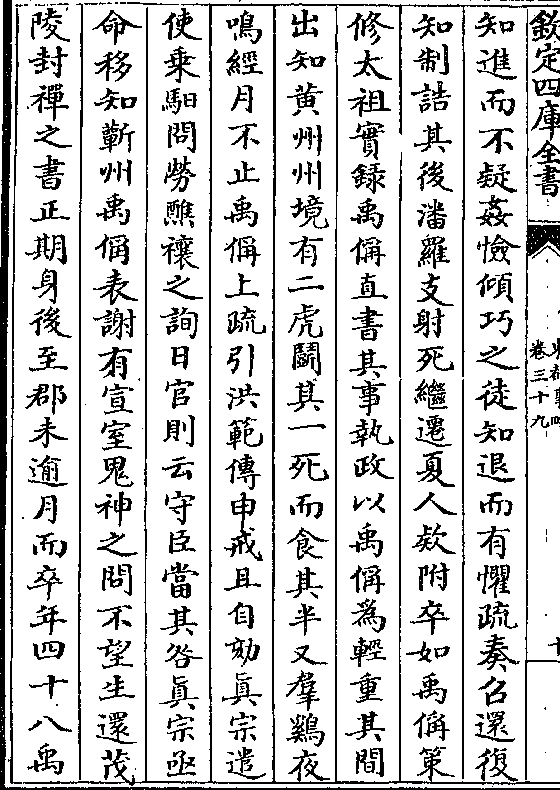 欽定四庫全書
卷三十九
知進而不疑姦憸傾巧之徒知退而有懼疏奏召還復
知制誥其後潘羅支射死繼遷夏人欵附卒如禹偁策
修太祖實録禹偁直書其事執政以禹偁為輕重其間
出知黄州州境有二虎鬬其一死而食其半又羣鷄夜
鳴經月不止禹偁上疏引洪範傳申戒且自劾真宗遣
使乗馹問勞醮禳之詢日官則云守臣當其咎真宗亟
命移知蘄州禹偁表謝有宣室鬼神之問不望生還茂
陵封禪之書正期身後至郡未逾月而卒年四十八禹